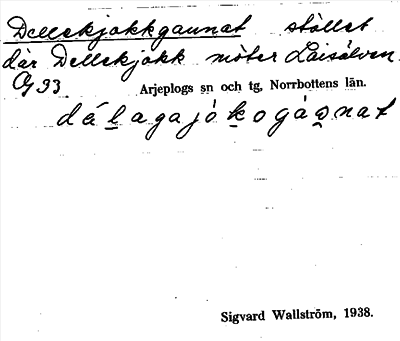 Dellekjokkgaunat stället
där Dellekjokk möter Laisälven.
Cg 93. Arjeplogs sn och tg, Norrbottens län.
dálagajókogáu̯nat
Sigvard Wallström, 1938.